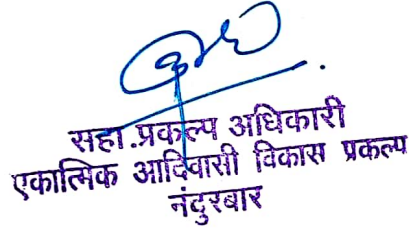 सहा.प्रकल्प अधिकारी
एकात्मिक आदिवासी विकास प्रकल्प
नंदुरबार